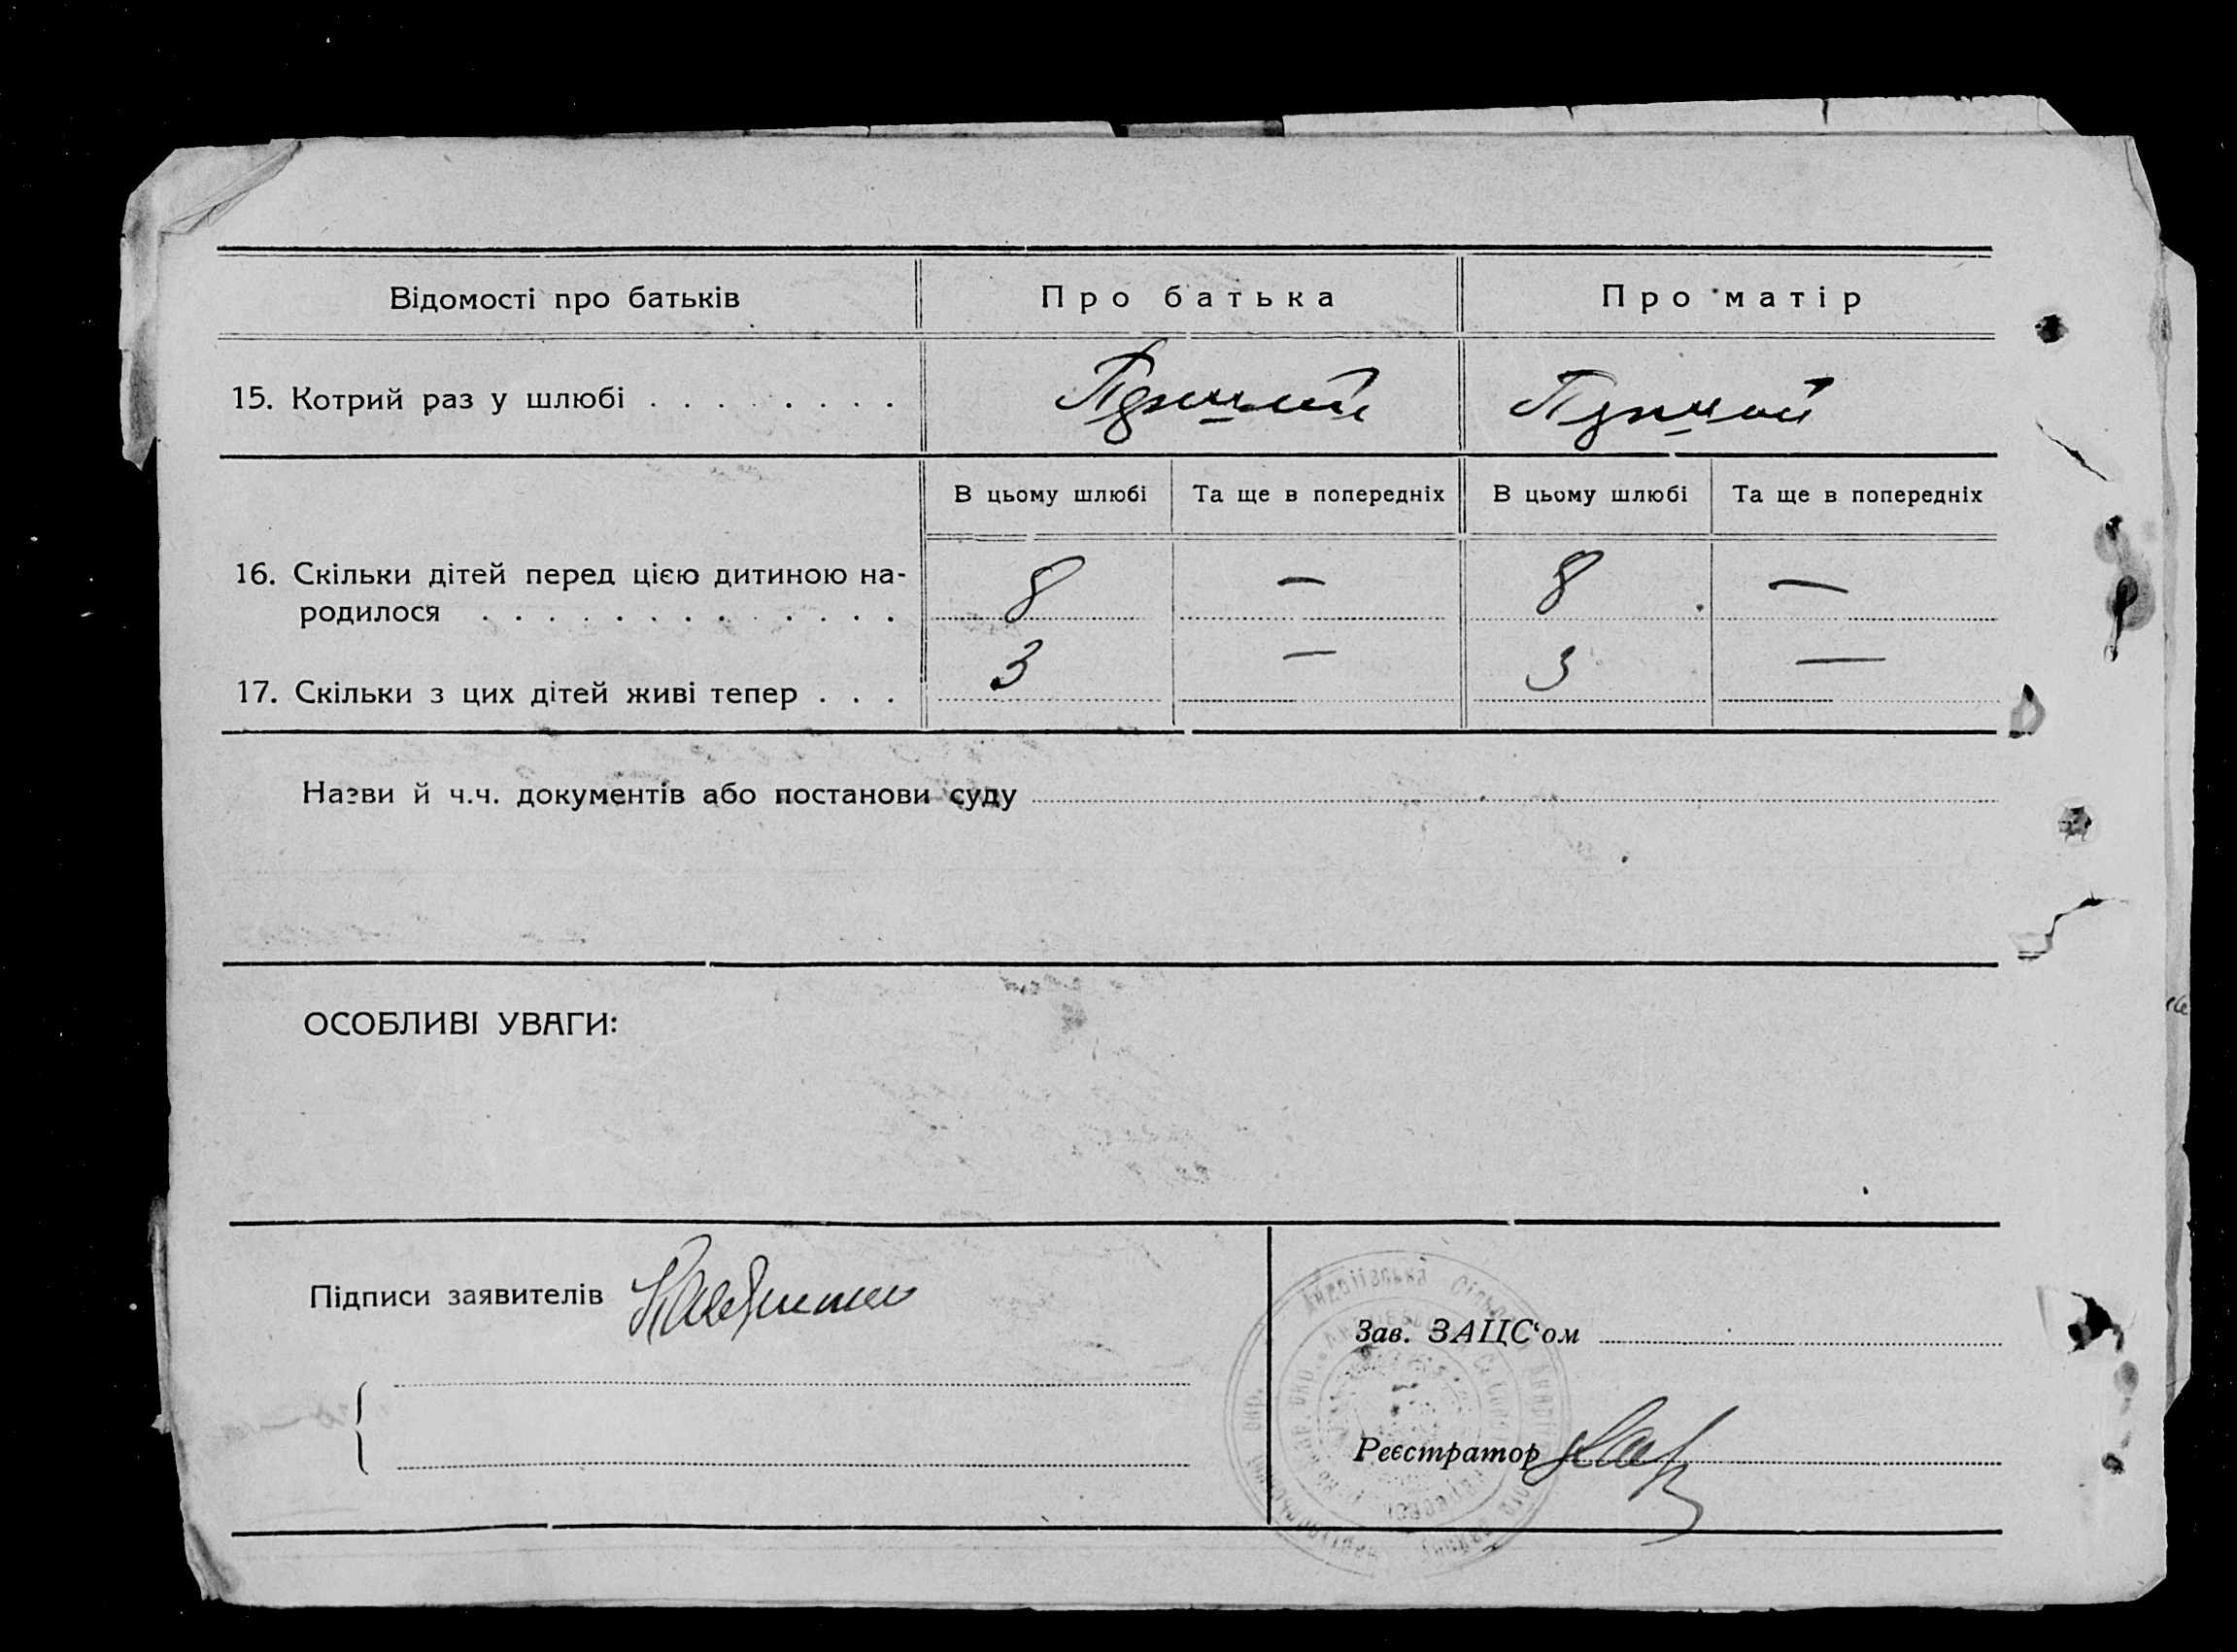 Відомості про батьків
Про батька
Про матір
15. Котрий раз у шлюбі . . . . . . . .
Перший
Перший
В цьому шлюбі
Та ще в попередніх
В цьому шлюбі
Та ще в попередніх
16. Скільки дітей перед цією дитиною на-
родилося . . . . . . . . . . . . .
8
—
8
—
17. Скільки з цих дітей живі тепер . . .
3
—
3
—
Назви й ч.ч. документів або постанови суду
ОСОБЛИВІ УВАГИ:
Підписи заявителів
Зав. ЗАЦС‘ом
Реєстратор
Андріївська Сільська